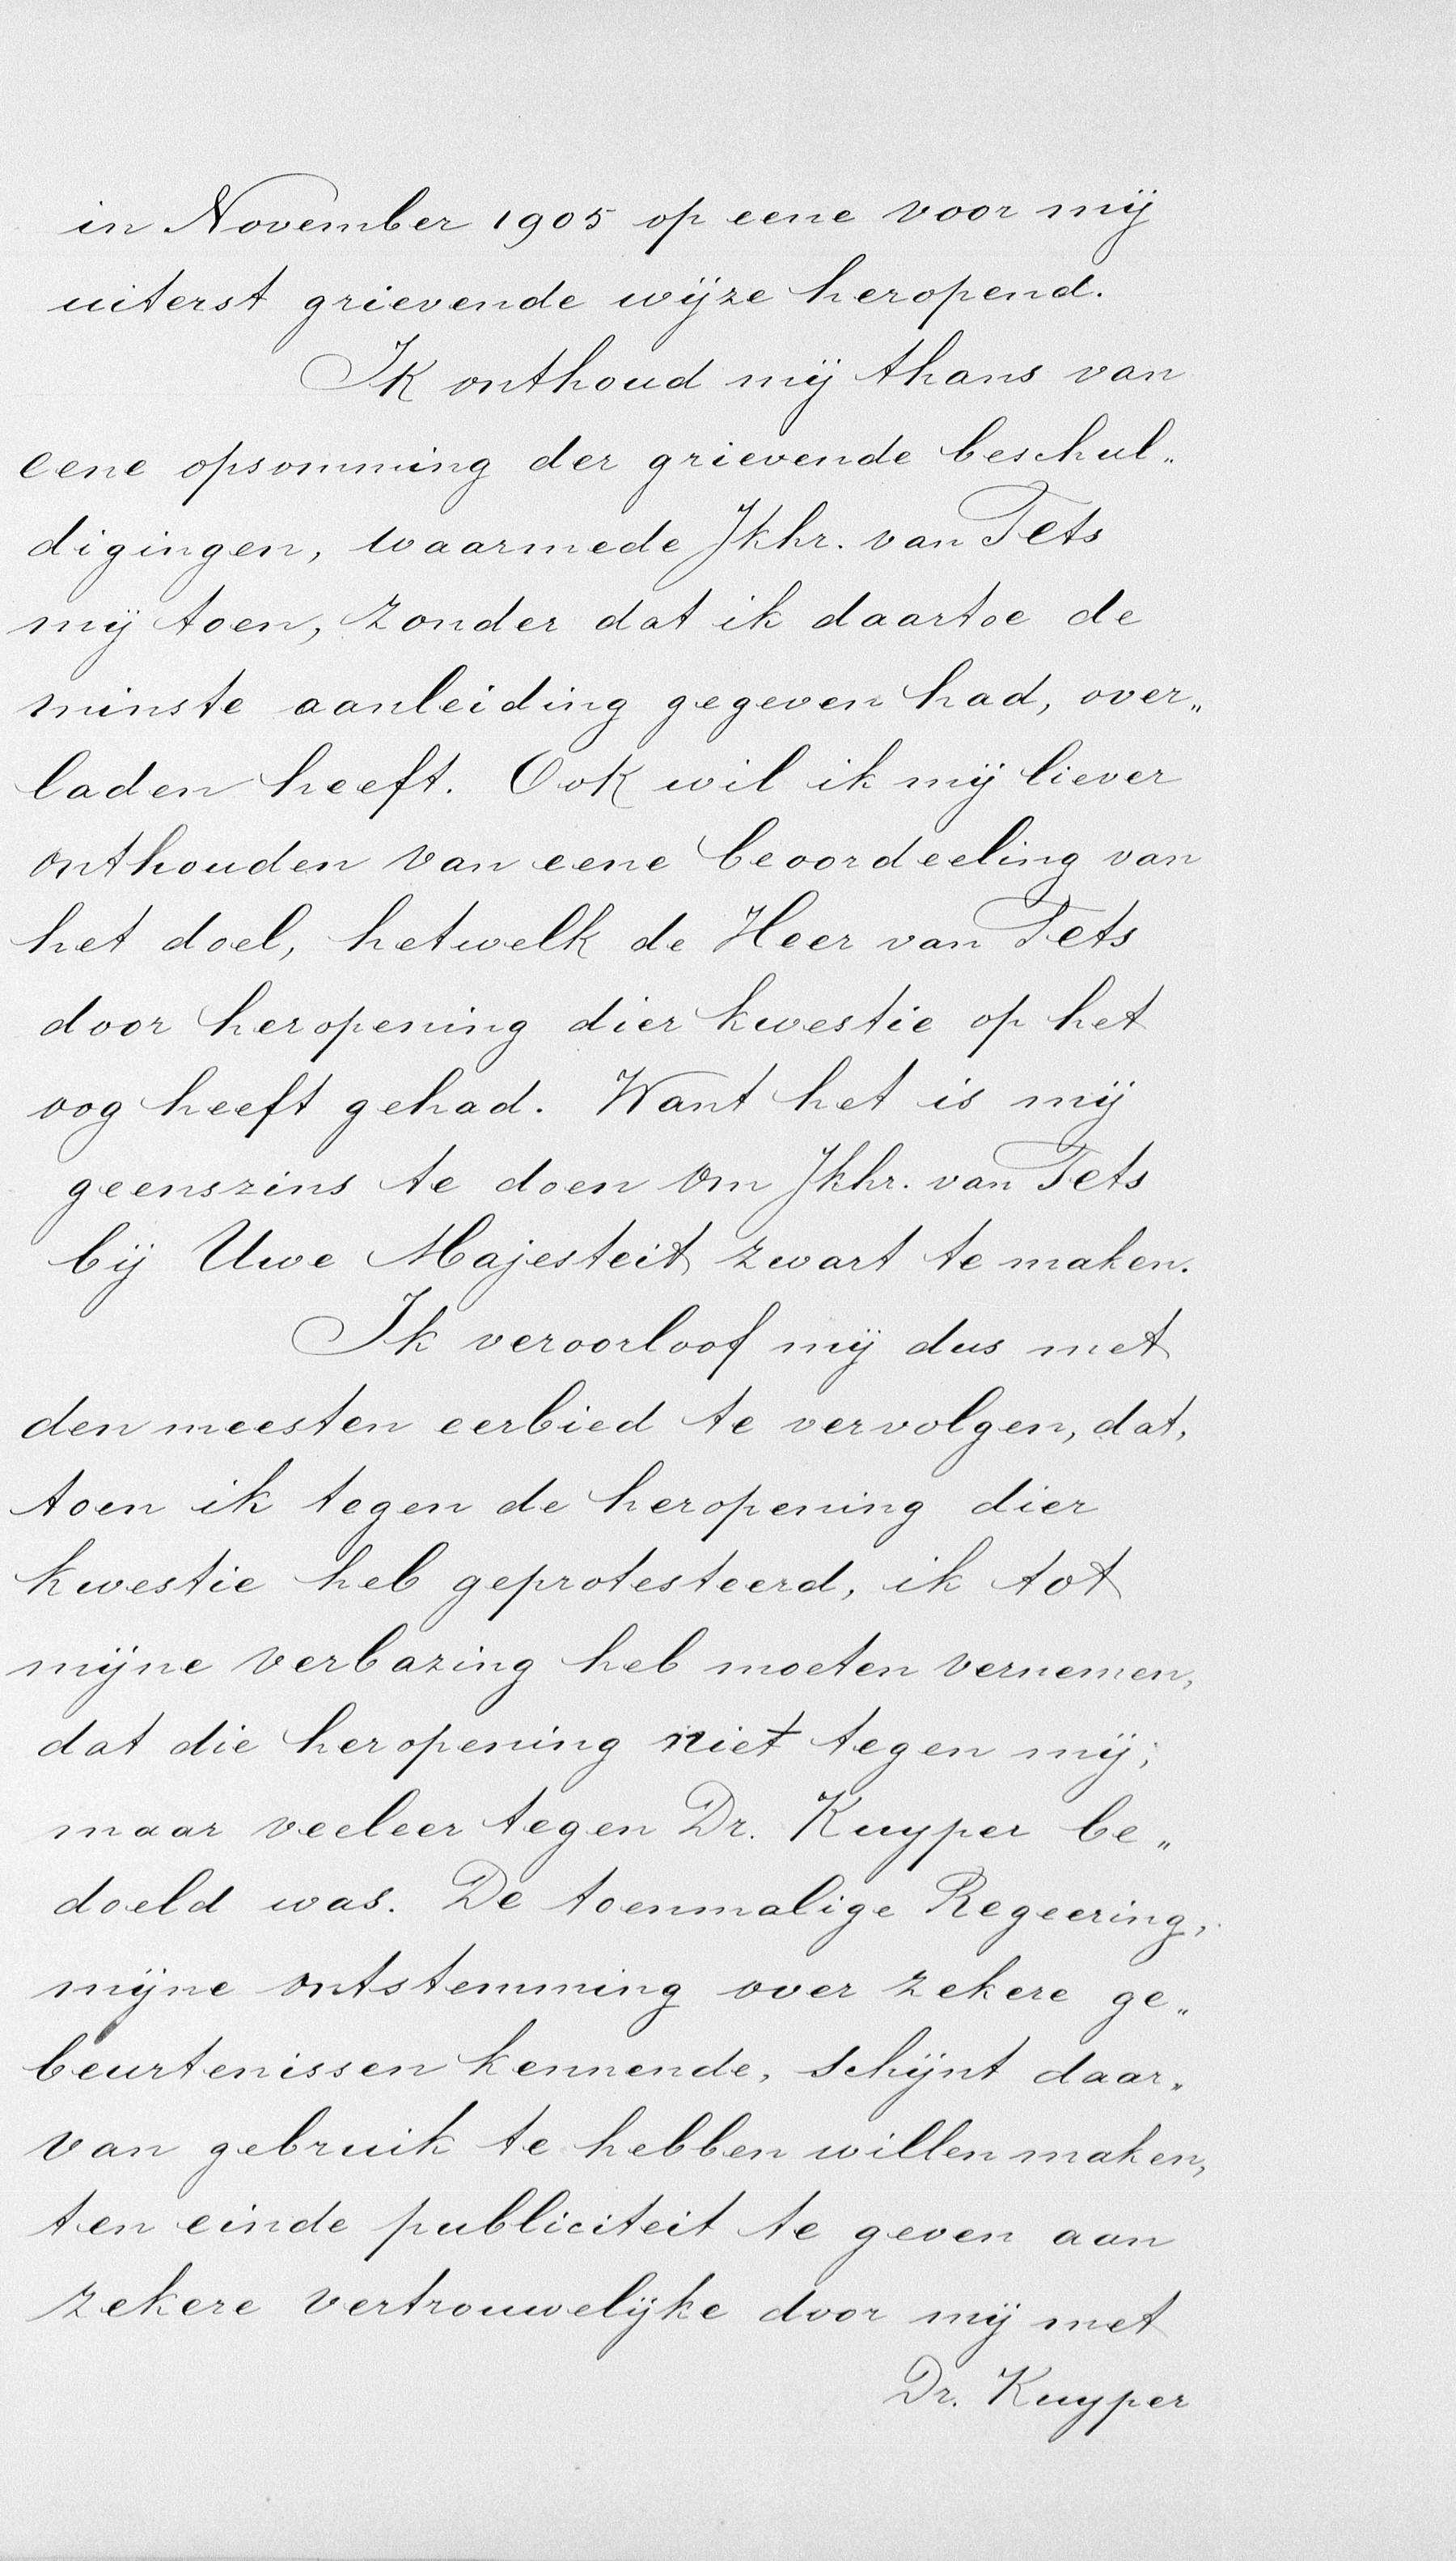 in November 1905 op eene voor mij
uiterst grievende wijze heropend.
Ik onthoud mij thans van
eene opsomming der grievende beschul„
digingen, waarmede Jkhr. van Tets
mij toen, zonder dat ik daartoe de
minste aanleiding gegeven had, over„
laden heeft. Ook wil ik mij liever
onthouden van eene beoordeeling van
het doel, hetwelk de Heer van Tets
door heropening dier kwestie op het
oog heeft gehad. Want het is mij
geenszins te doen om Jkhr. van Tets
bij Uwe Majesteit zwart te maken.
Ik veroorloof mij dus met
den meesten eerbied te vervolgen, dat,
toen ik tegen de heropening dier
kwestie heb geprotesteerd, ik tot
mijne verbazing heb moeten vernemen,
dat die heropening niet tegen mij;
maar veeleer tegen Dr. Kuyper be„
doeld was. De toenmalige Regeering,
mijne ontstemming over zekere ge„
beurtenissen kennende, schijnt daar„
van gebruik te hebben willen maken,
ten einde publiciteit te geven aan
zekere vertrouwelijke door mij met
Dr. Kuyper